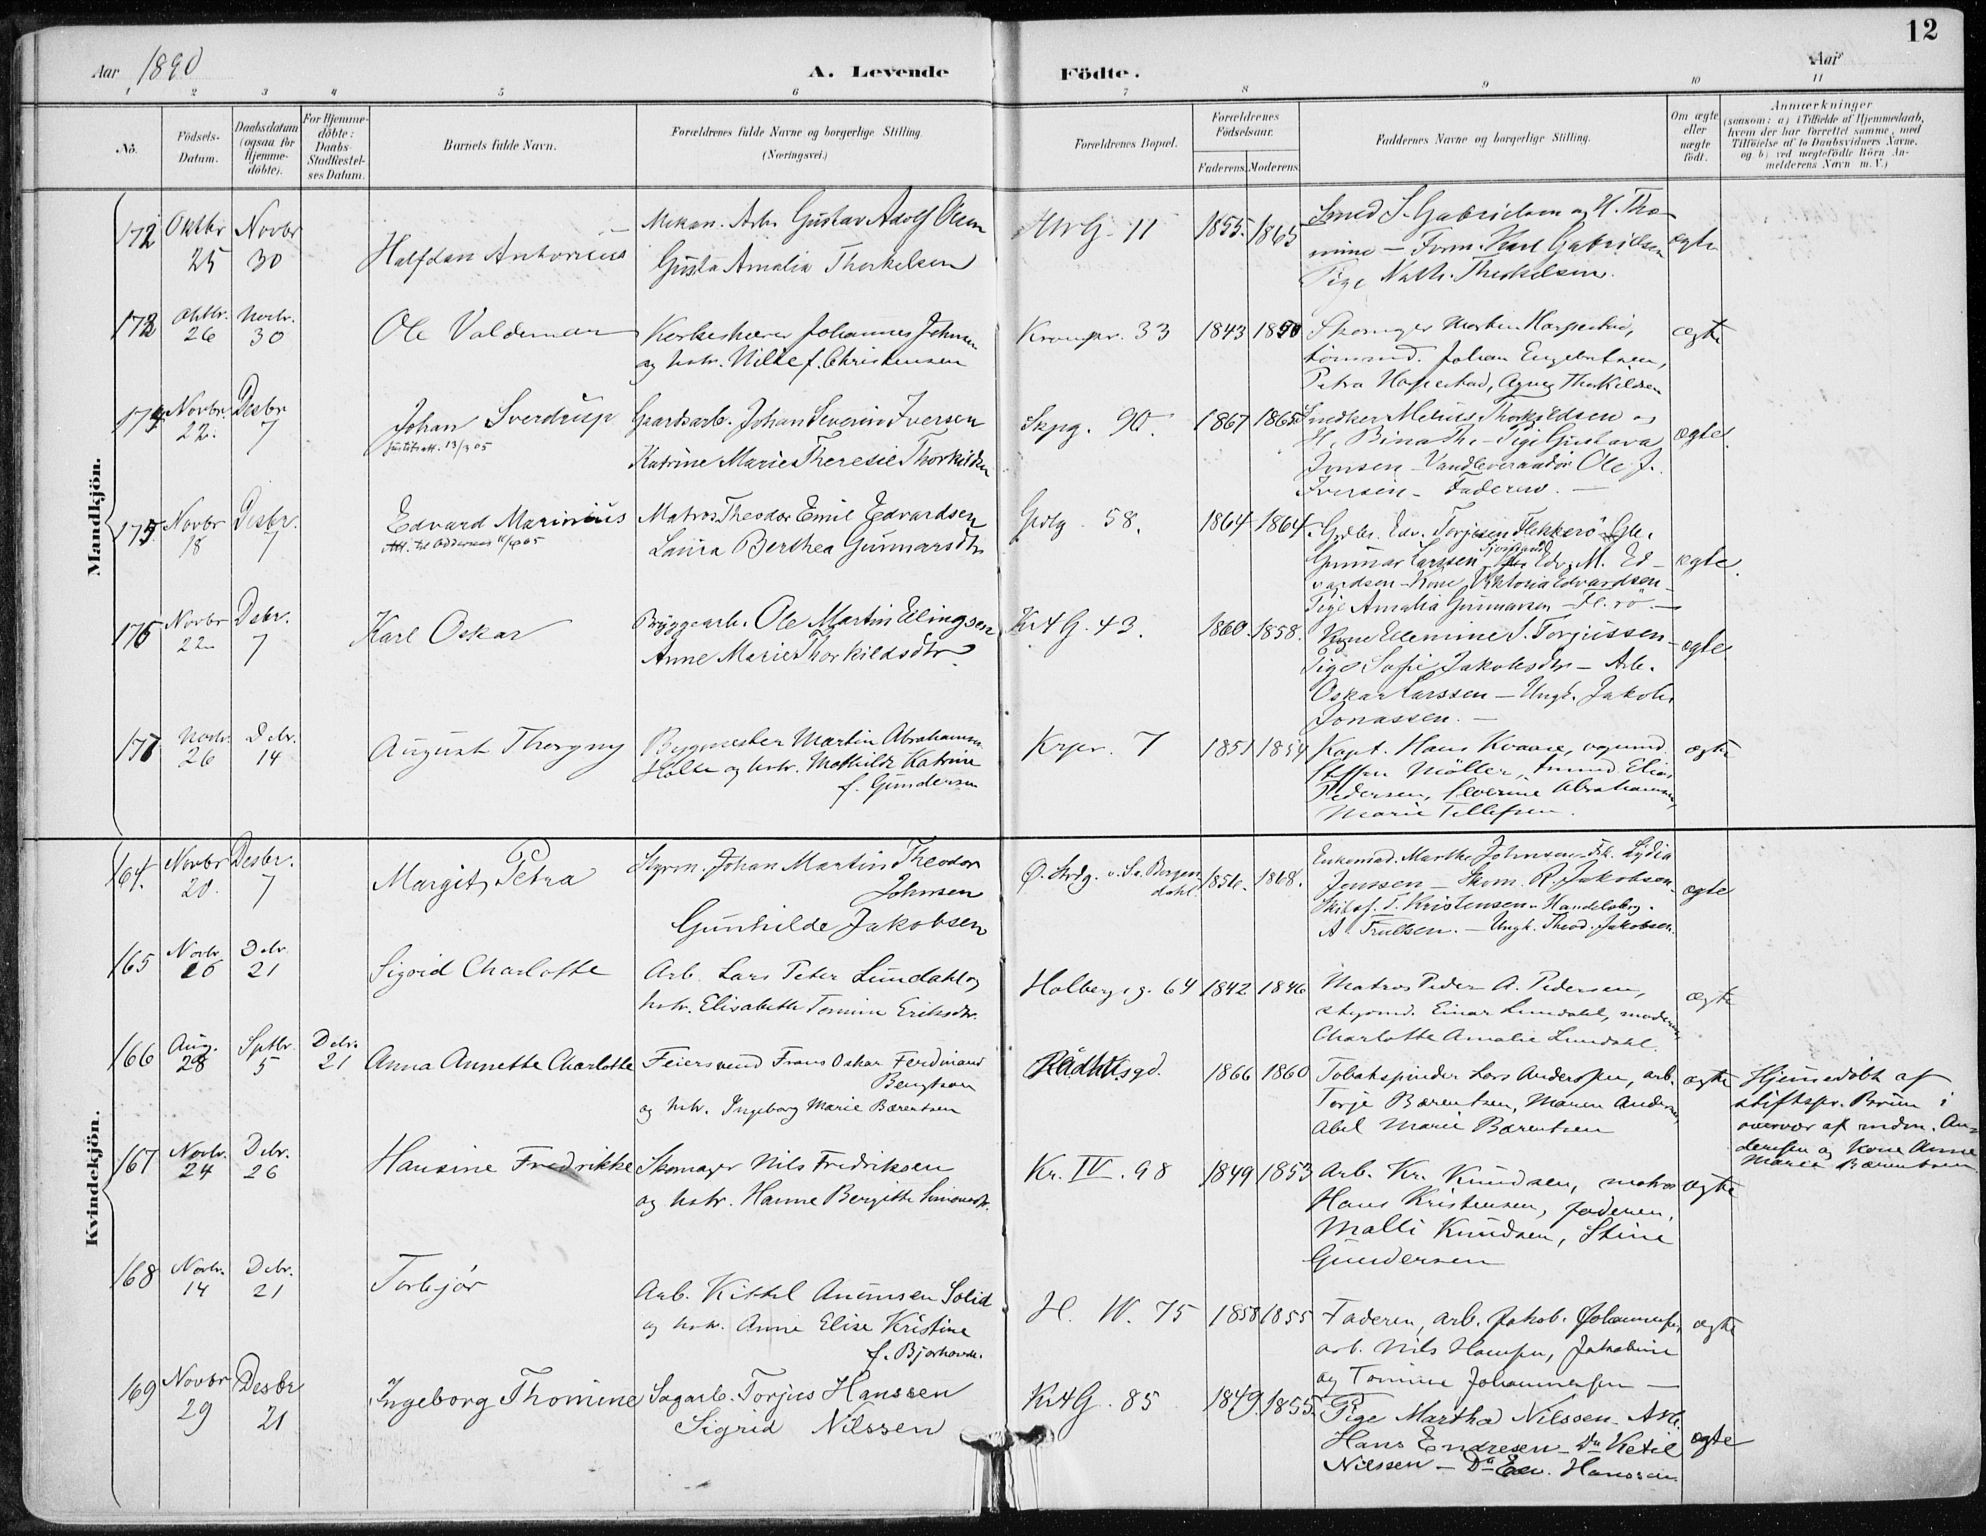 12
Aar 1890
A. Levende Födte.
Aar
1 2 3 4 5 6 7 8 9 10 11
No.
Födsels-Datum.
Daabsdatum (ogsaa for Hjemmedöbte).
For Hjemmedöbte: Daabs Stadfæstelses Datum.
Barnets fulde Navn.
Forældrenes fulde Navne og borgerlige Stilling. (Næringsvei.)
Forældrenes Bopæl.
Forældrenes Födselsaar.
Faderens. Moderens.
Faddernes Navne og borgerlige Stilling.
Om ægte eller uægte födt.
Anmærkninger
(saasom: a) i Tilfælde af Hjemmedaab,
hvem der har forrettet samme, med
Tilföielse af to Daabsvidners Navne.
og b) ved uægtefödte Börn An-
melderens Navn m. V.)
Mandkjön.
172 Oktbr 25 Novbr 30
Halfdan Antonius
Mekan. Arb. Gustav Adolf Olsen
Gusta Amalia Thorkelsen
11 1855. 1865
Smed S. Gabrielsen og H. Tho-
mine — Form. Karl Gabrielsen
Pige Nath. Thorkelsen.
ægte
172 Oktbr. 26 Novbr. 30
Ole Valdemar
Korkeskærer Johannes Johnsen
og hstr. Nille f. Christensen
Kronpr. 33 1843 1850
Skomager Morten Harpestad,
tömmd. Johan Engebretsen,
Petra Harpestad, Agnes Thorkildsen
ægte
Novbr 22. Desbr 7
Johan Sverdrup
13/3 05
Gaardsarb. Johan Severin Iversen
Katrine Marie Theresie Thorkildsen
Skpg. 90. 1867 1865
Snedker Melius Thorkildsen og
H. Bina Th. — Pige Gustava
Jensen — Vandleverandör Ole J.
Iversen — Faderen. —
ægte.
175 Novbr 18 Desbr. 7
Edvard Marinius
Matros Theodor Emil Edvardsen
Laura Berthea Gunnarsdtr
58. 1864 1864
Gdbr. Edv. Torjesen Flekkerö — Gbr.
Gunnar Larssen — Edv. M. Ed-
vardsen — Kone Viktoria Edvardsen —
Pige Amalia Gunnarsen — Fl.rö. —
ægte.
176 Novbr 22 Debr. 7
Karl Oskar
Bryggearb. Ole Martin Ellingsen
Anne Marie Thorkildsdtr.
Kr4G. 43. 1860. 1858.
Kone Ellemine T. Torjussen —
Pige Sofie Jakobsdtr — Arb.
Oskar Larssen — Ungk. Jakob
Jonassen. —
ægte
177 Novbr. 26 Debr. 14
August Thorgny
Bygmester Martin Abrahamsen
Holte og hstr. Mathilde Katrine
f. Gundersen
Krpr. 7 1851 1854
Kapt. Hans Kvaase, vognmd.
Steffen Möller, tmmd. Elias
Pedersen, Severine Abrahamsen,
Marie Tellefsen.
ægte
Kvindekjön.
164. Novbr 20. Desbr. 7
Margit Petra
Styrm. Johan Martin Theodor
Johnsen
Gunhilde Jakobsen
Ö. Strdg. v. Sv. Bergen
dahl. 1856. 1868.
Enkemad. Marthe Johnsen — Frk. Lydia
Jenssen — Skom. R. Jakobsen —
Skibsf. T. Kristensen — Handelsbg.
A. Trulsen. — Ungk. Theod. Jakobsen.
ægte
165 Novbr. 26 Debr. 21
Sigrid Charlotte
Arb. Lars Peter Lundahl og
hstr. Elisabeth Tomine Eriksdtr.
Holbergsg. 64 1842 1846
Matros Peder A. Pedersen,
styrmd. Einar Lundahl, moderen,
Charlotte Amalie Lundahl.
ægte
166 Aug. 28 Sptbr. 5 Debr. 21
Anna Annette Charlotte
Feiersvend Frans Oskar Ferdinand
Bengtson
og hstr. Ingeborg Marie Bærentsen
Rådhusgd. 1866 1860
Tobakspinder Lars Andersen, arb.
Torje Bærentsen, Maren Andersen,
Abel Marie Bærentsen
ægte
Hjemedöbt af
stiftspr. Bruun i
overvær af mdm. An-
dersen og Kone Anne
Marie Bærentsen
167 Novbr. 24 Debr. 26
Hansine Fredrikke
Skomager Nils Fredriksen
og hstr. Hanne Bergitte Simonsdtr.
Kr. IV. 98 1849 1853
Arb. Kr. Knudsen, matros
Hans Kristensen, faderen,
Malli Knudsen, Stine
Gundersen
ægte
168 Novbr. 14 Debr. 21
Torbjör
Arb. Kittel Aanunsen Solid
og hstr. Anne Elise Kristine
f. Bjorhovde.
H. W. 75 1858 1855
Faderen, arb. Jakob Johannesen,
arb. Nils Hansen, Jakobine
og Tomine Johannesen —
ægte
169 Novbr 29 Desbr 21
Ingeborg Thomine
Sagarb. Torjus Hanssen
Sigrid Nilssen
Kr4G. 85 1849. 1855.
Pige Martha Nilssen — Arb.
Hans Endresen — Do Ketil
Nilssen — Do Edv. Hanssen
ægte